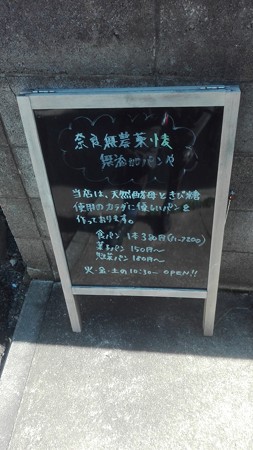 奈良無農薬小麦
無添加パンや
当店は、天然酵母ときび糖
使用のカラダに優しいパンを
作っております。
食パン 1本 380円
菓子パン 150円〜
惣菜パン 180円〜
火・金・土の10:30〜 OPEN!!